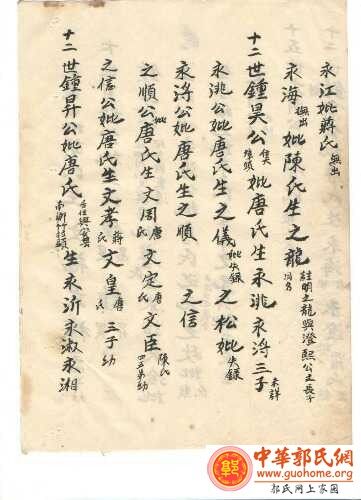 永江妣蔣氏無出
永海無出妣陳氏生之龍註明之龍與澄熙公之長子同名
十二世鍾昊公妣唐氏生永洮永浔三子未詳
永洮公妣唐氏生之儀妣失錄之松妣失錄
永浔公妣唐氏生之順 之信
之順公妣唐氏生文周唐氏文定唐氏文臣陳氏四五弟幼
之信公妣唐氏生文孝蔣氏文皇唐氏三子幼
十二世鍾昇公妣唐氏生永沂永淑永湘
中華郭氏網
www.guohome.org
郭氏网上家园